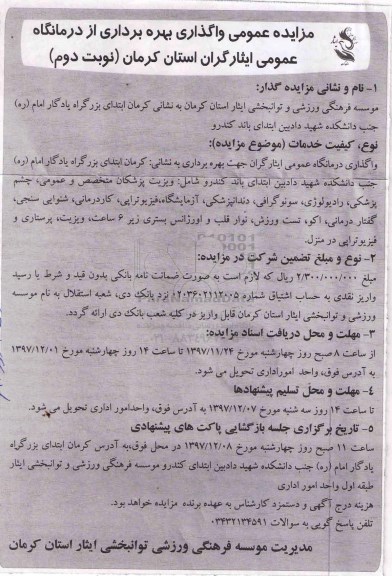 مزایده عمومی واگذاری بهره برداری از درمانگاه
عمومی ایثارگران استان کرمان (نوبت دوم)
۱- نام و نشانی مزایده گذار:
موسسه فرهنگی ورزشی و توانبخشی ایثار استان کرمان به نشانی کرمان ابتدای بزرگراه یادگار امام (ره)
جنب دانشکده شهید دادبین ابتدای باند کندرو
نوع، کیفیت خدمات (موضوع مزایده):
واگذاری درمانگاه عمومی ایثارگران جهت بهره برداری به نشانی: کرمان ابتدای بزرگراه یادگار امام (ره)
جنب دانشکده شهید دادبین ابتدای باند کندرو شامل: ویزیت پزشکان متخصص و عمومی، چشم
پزشکی، رادیولوژی، سونوگرافی، دندانپزشکی، آزمایشگاه،فیزیوتراپی، کاردرمانی، شنوایی سنجی،
گفتار درمانی، اکو، تست ورزش، نوار قلب و اورژانس بستری زیر ۶ ساعت، ویزیت، پرستاری و
فیزیوتراپی در منزل.
۲- نوع و مبلغ تضمین شرکت در مزایده:
مبلغ ۲/۳۰۰/۰۰۰/۰۰۰ ریال که لازم است به صورت ضمانت نامه بانکی بدون قید و شرط یا رسید
واریز نقدی به حساب اشتیاق شماره ۰۲۰۳۶۰۲۱۱۲۰۰۵ نزد بانک دی، شعبه استقلال به نام موسسه
ورزشی و توانبخشی ایثار استان کرمان قابل واریز در کلیه شعب بانک دی ارائه گردد.
۳- مهلت و محل دریافت اسناد مزایده:
از ساعت ۸صبح روز چهارشنبه مورخ ۱۳۹۷/۱۱/۲۴ تا ساعت ۱۴ روز چهارشنبه مورخ ۱۳۹۷/۱۲/۰۱
به آدرس فوق، واحد اموراداری تحویل می شود.
۴- مهلت و محل تسلیم پیشنهادها
تا ساعت ۱۴ روز سه شنبه مورخ ۱۳۹۷/۱۲/۰۷ به آدرس فوق، واحدامور اداری تحویل می شود.
۵- تاریخ برگزاری جلسه بازگشایی پاکت های پیشنهادی
ساعت ۱۱ صبح روز چهارشنبه مورخ ۱۳۹۷/۱۲/۰۸ در محل فوق،به آدرس کرمان ابتدای بزرگراه
یادگار امام (ره) جنب دانشکده شهید دادبین ابتدای کندرو موسسه فرهنگی ورزشی و توانبخشی ایثار
طبقه اول واحد امور اداری
هزینه درج آگهی و دستمزد کارشناس به عهده برنده مزایده خواهد بود.
تلفن پاسخ گویی به سوالات ۰۳۴۳۲۱۳۴۵۹۱
مدیریت موسسه فرهنگی ورزشی توانبخشی ایثار استان کرمان